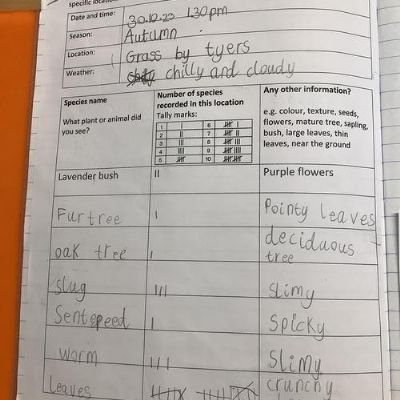 specific location
Date and time: 30.10.23 1.30pm
Season: Autumn
Location: Grass by tyers
Weather: chilly and cloudy
Species name
What plant or animal did
you see?
Number of species
recorded in this location
Tally marks:
1 | 6 𝍸 |
2 || 7 𝍸 ||
3 ||| 8 𝍸 |||
4 |||| 9 𝍸 ||||
5 𝍸 10 𝍸 𝍸
Any other information?
e.g. colour, texture, seeds,
flowers, mature tree, sapling,
bush, large leaves, thin
leaves, near the ground
Lavender bush || Purple flowers
Fur tree | Pointy leaves
oak tree | deciduous
tree
slug ||| slimy
Sentepeed | Spicky
worm ||| Slimy
leaves crunchy